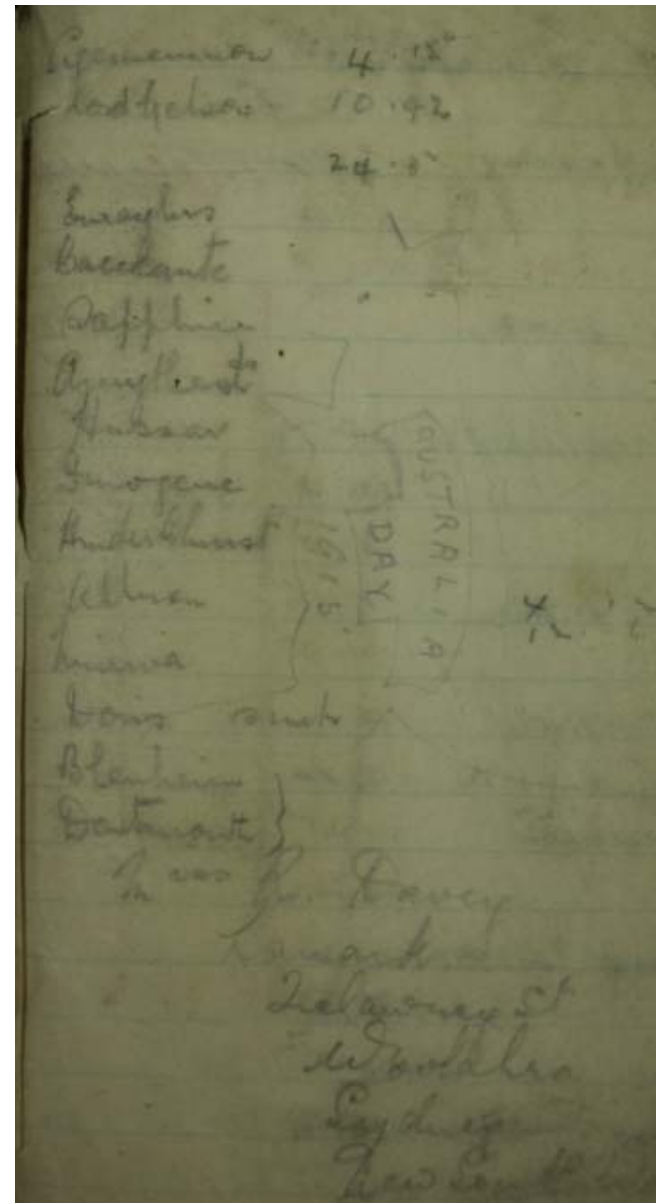 Agamemnon 4.15
Lord Nelson 10.42
24.5
Euryalus
Bacchante
Sapphire
Amythest
Hussar
Imogene
Minerva
Doris sunk
Blenheim
Dartmouth
AUSTRALIA
DAY
1915
Davey
Lanark
Trelawney St
Woollahra
Sydney
New South